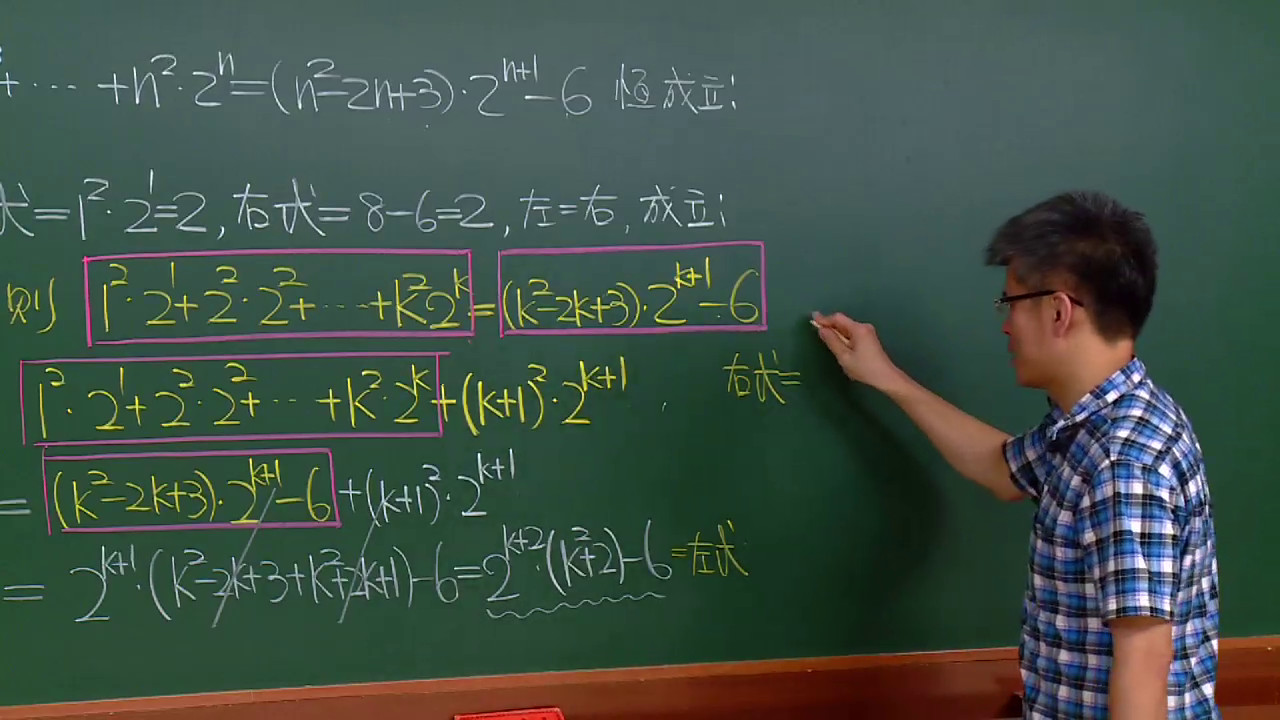 + ⋯ + n²·2ⁿ = (n²-2n+3)·2ⁿ⁺¹ - 6 恆成立
式 = 1²·2¹ = 2, 右式 = 8-6 = 2, 左=右, 成立
則 1²·2¹+2²·2²+⋯+k²·2ᵏ = (k²-2k+3)·2ᵏ⁺¹ - 6
1²·2¹+2²·2²+⋯+k²·2ᵏ + (k+1)²·2ᵏ⁺¹ 右式=
= (k²-2k+3)·2ᵏ⁺¹ - 6 + (k+1)²·2ᵏ⁺¹
= 2ᵏ⁺¹·(k²-2k+3+k²+2k+1) - 6 = 2ᵏ⁺²·(k²+2) - 6 = 左式